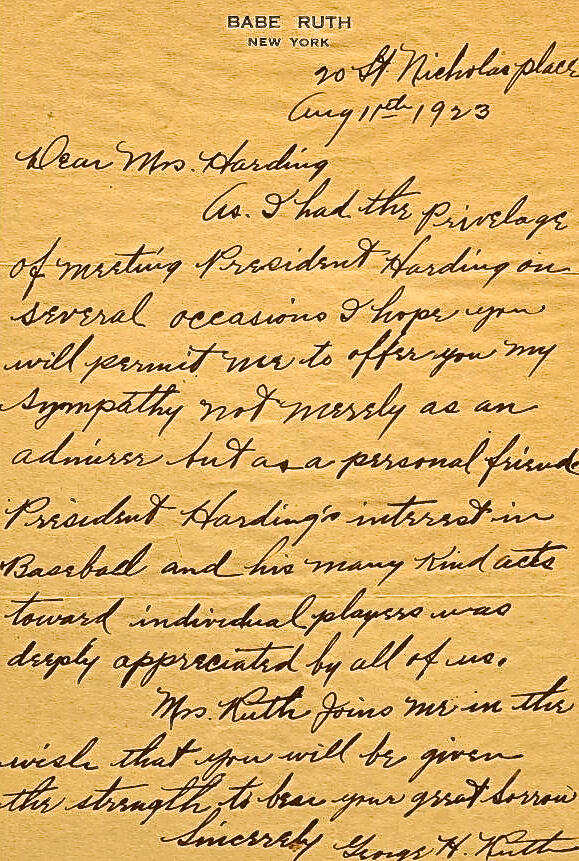 BABE RUTH
NEW YORK
20 St. Nicholas place
Aug 11th 1923
Dear Mrs. Harding
As. I had the Privelage
of meeting President Harding on
several occasions I hope you
will permit me to offer you my
sympathy not merely as an
admirer but as a personal friend
President Harding's interest in
Baseball and his many kind acts
toward individual players was
deeply appreciated by all of us.
Mrs. Ruth Joins me in the
wish that you will be given
the strength to bear your great sorrow
Sincerely George H. Ruth